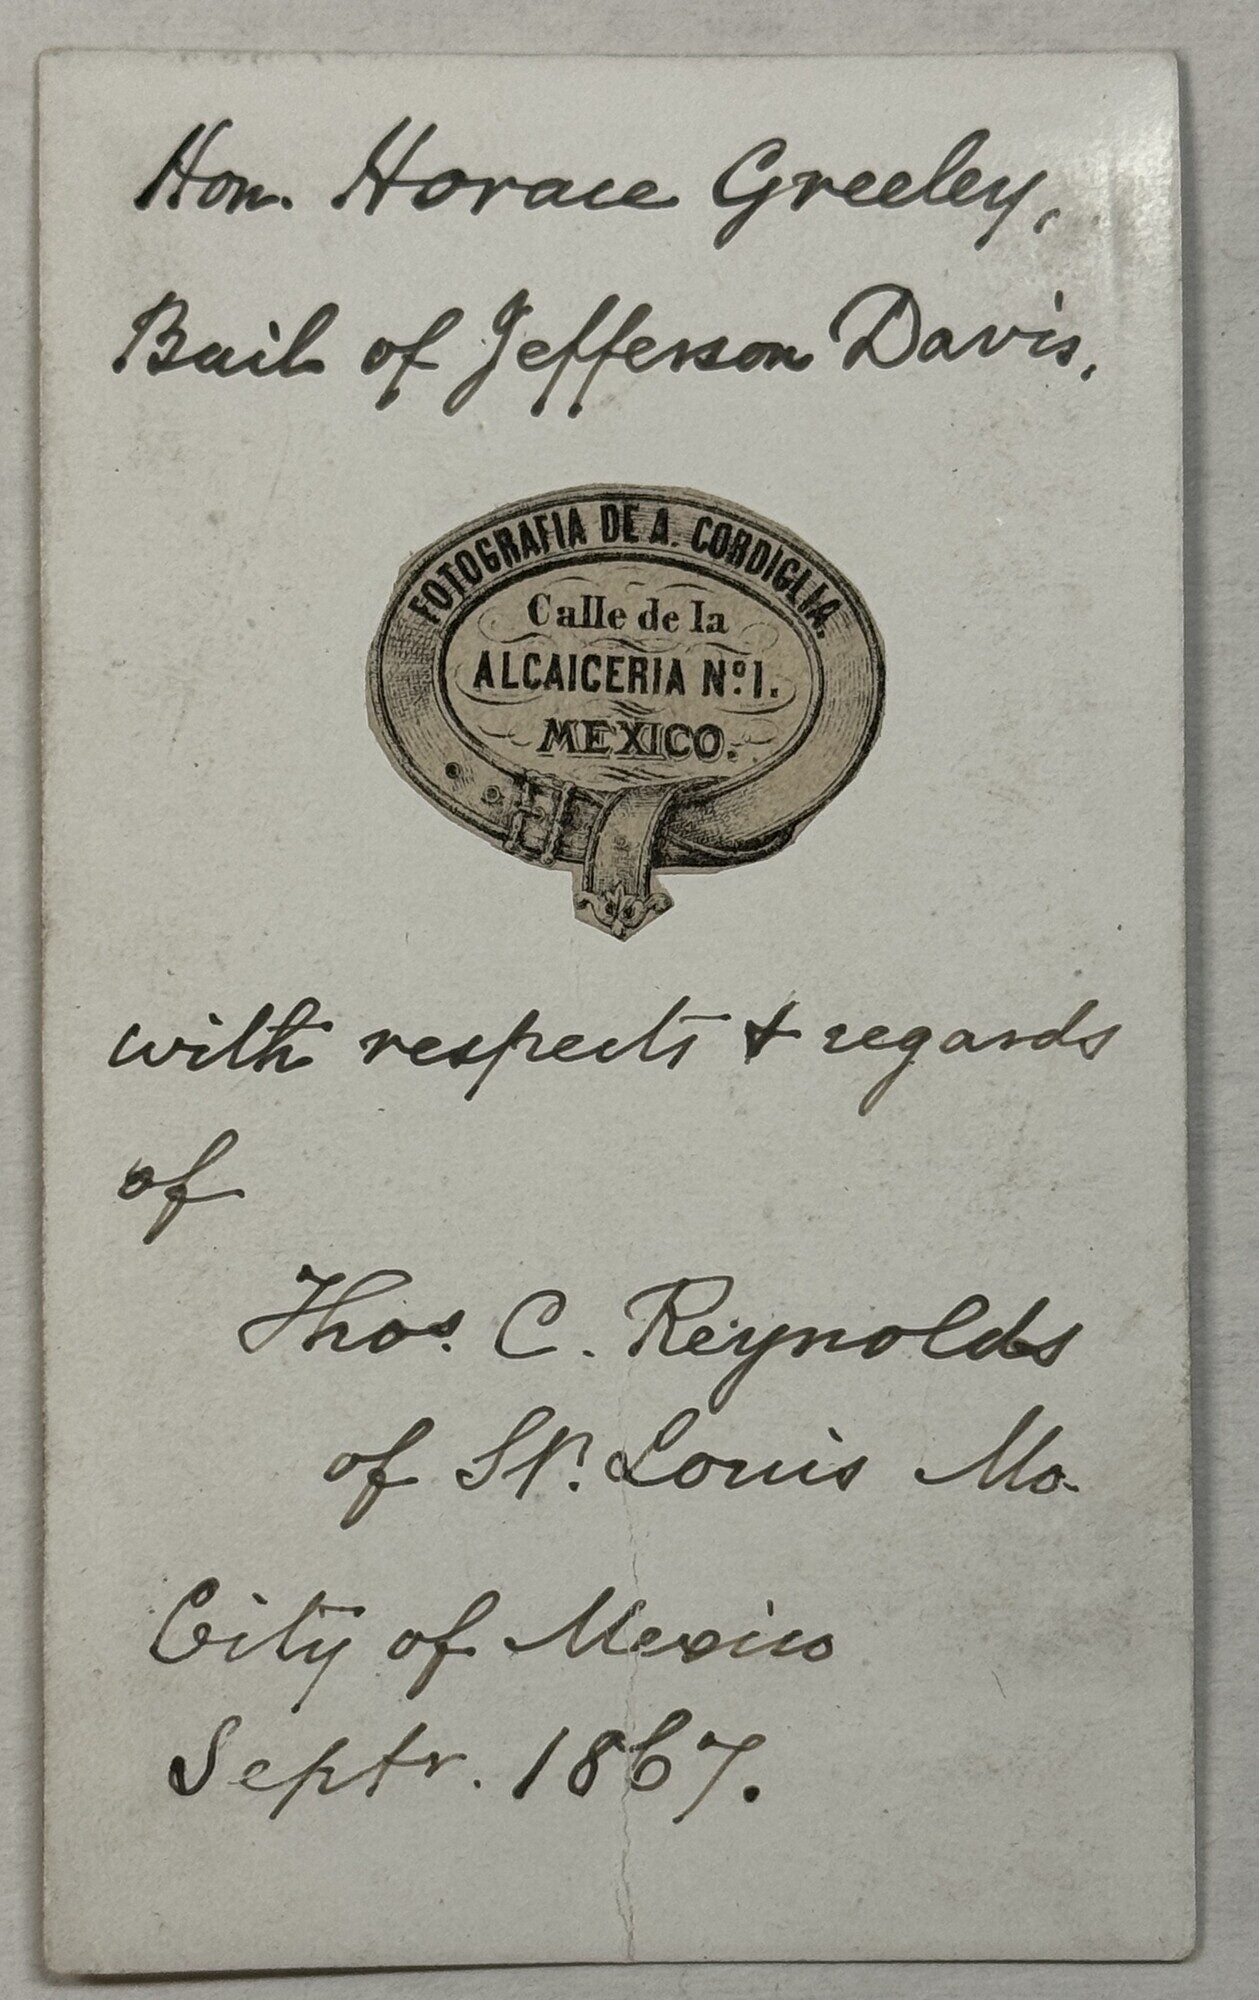 Hon. Horace Greeley,
Bail of Jefferson Davis,
FOTOGRAFIA DE A. CORDIGLIA.
Calle de la
ALCAICERIA Nº. 1.
MEXICO.
with respects & regards
of
Thos. C. Reynolds
of St. Louis Mo.
City of Mexico
Septr. 1867.